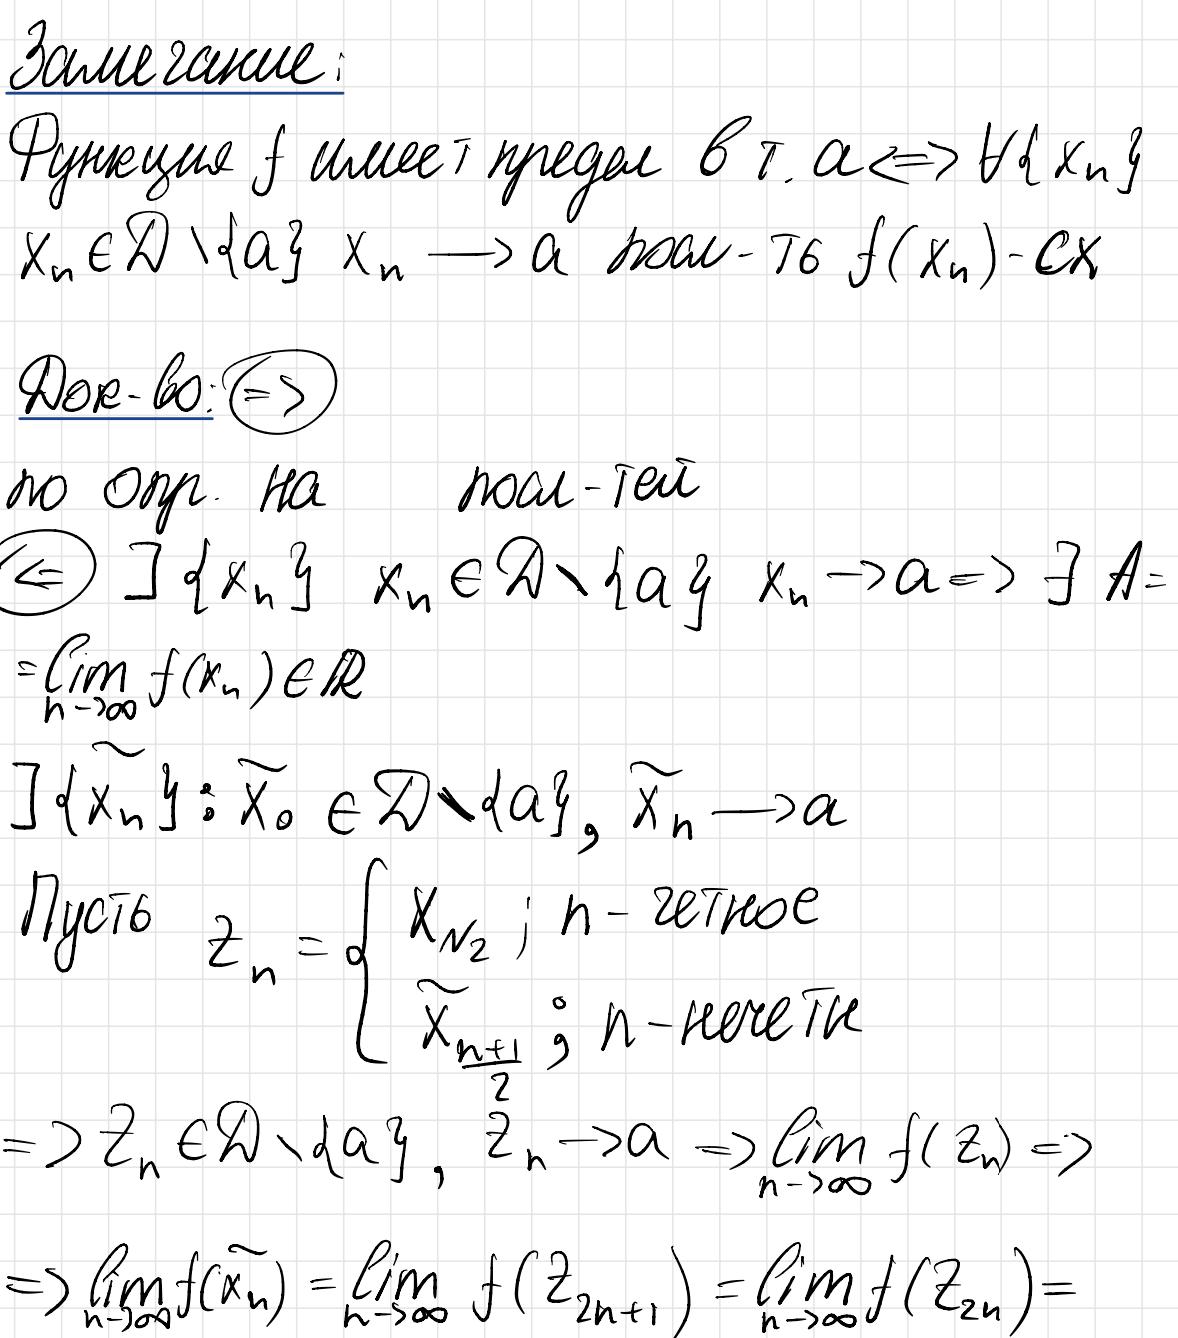 Замечание:
Функция f имеет предел в т. a <=> ∀{xₙ}
xₙ ∈ D \ {a} xₙ → a посл-ть f(xₙ) - сх
Док-во: =>
по опр. на посл-тей
<= ] {xₙ} xₙ ∈ D \ {a} xₙ → a => ∃ A =
= lim_{n->∞} f(xₙ) ∈ ℝ
] {x̃ₙ} : x̃₀ ∈ D \ {a}, x̃ₙ → a
Пусть zₙ = { x_{N2} ; n - четное
x̃_{(n+1)/2} ; n - нечетн
=> zₙ ∈ D \ {a}, zₙ → a => lim_{n->∞} f(zₙ) =>
=> lim_{n->∞} f(x̃ₙ) = lim_{n->∞} f(z_{2n+1}) = lim_{n->∞} f(z_{2n}) =